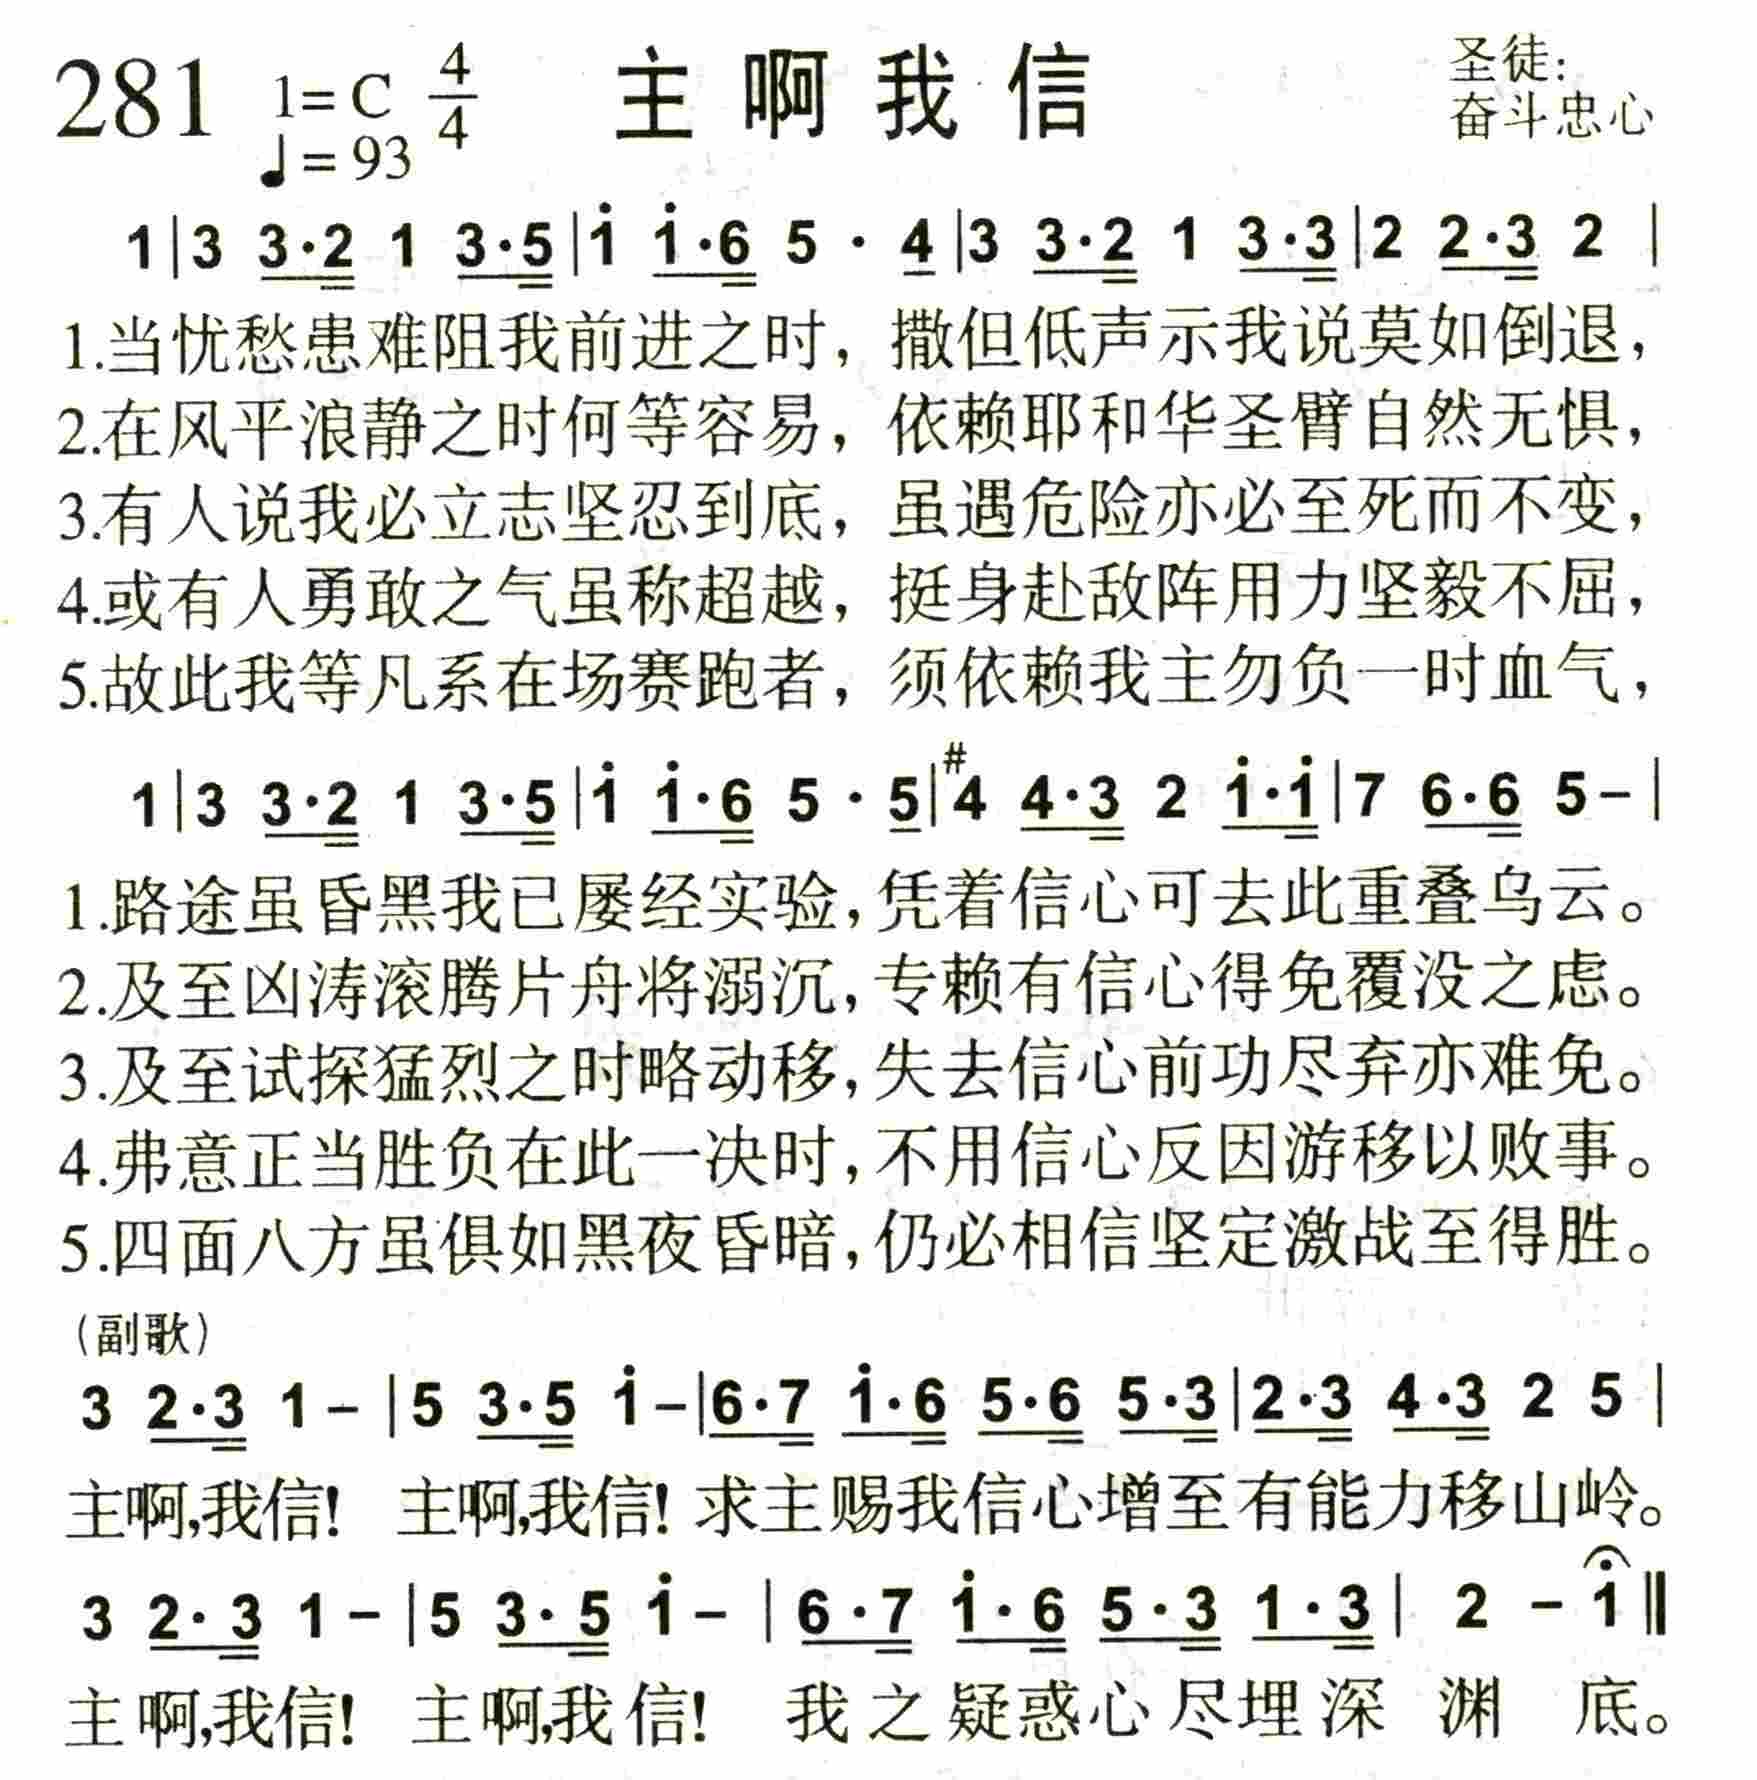 281 1=C 4/4 主啊我信 圣徒:
♩=93 奋斗忠心
1|3 3·2 1 3·5|i i·6 5 · 4|3 3·2 1 3·3|2 2·3 2 |
1.当忧愁患难阻我前进之时，撒但低声示我说莫如倒退，
2.在风平浪静之时何等容易，依赖耶和华圣臂自然无惧，
3.有人说我必立志坚忍到底，虽遇危险亦必至死而不变，
4.或有人勇敢之气虽称超越，挺身赴敌阵用力坚毅不屈，
5.故此我等凡系在场赛跑者，须依赖我主勿负一时血气，
1|3 3·2 1 3·5|i i·6 5 · 5|#4 4·3 2 i·i|7 6·6 5–|
1.路途虽昏黑我已屡经实验,凭着信心可去此重叠乌云。
2.及至凶涛滚腾片舟将溺沉,专赖有信心得免覆没之虑。
3.及至试探猛烈之时略动移,失去信心前功尽弃亦难免。
4.弗意正当胜负在此一决时,不用信心反因游移以败事。
5.四面八方虽俱如黑夜昏暗,仍必相信坚定激战至得胜。
(副歌)
3 2·3 1– |5 3·5 i–|6·7 i·6 5·6 5·3|2·3 4·3 2 5 |
主啊,我信! 主啊,我信! 求主赐我信心增至有能力移山岭。
3 2·3 1– |5 3·5 i– |6·7 i·6 5·3 1·3| 2 – i ‖
主啊,我信! 主啊,我信! 我之疑惑心尽埋深渊底。